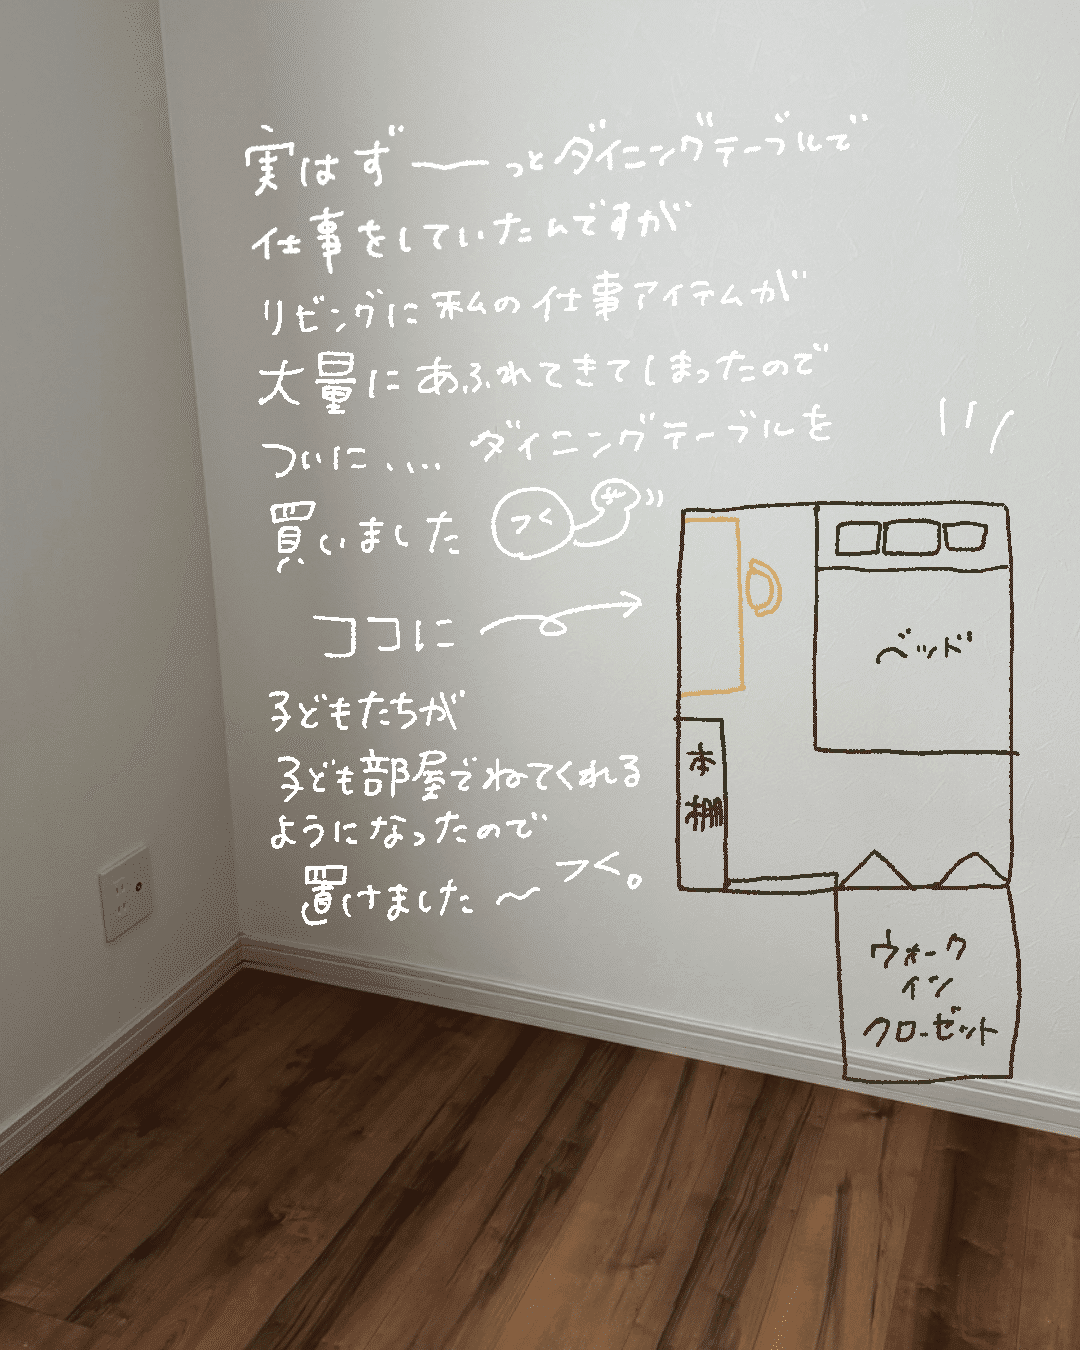 実はずーっとダイニングテーブルで
仕事をしていたんですが
リビングに私の仕事アイテムが
大量にあふれてきてしまったので
ついに、、、、ダイニングテーブルを
買いました
つく
ココに
子どもたちが
子ども部屋でねてくれる
ようになったので
置けました〜
つく。
ベッド
本
棚
ウォーク
イン
クローゼット